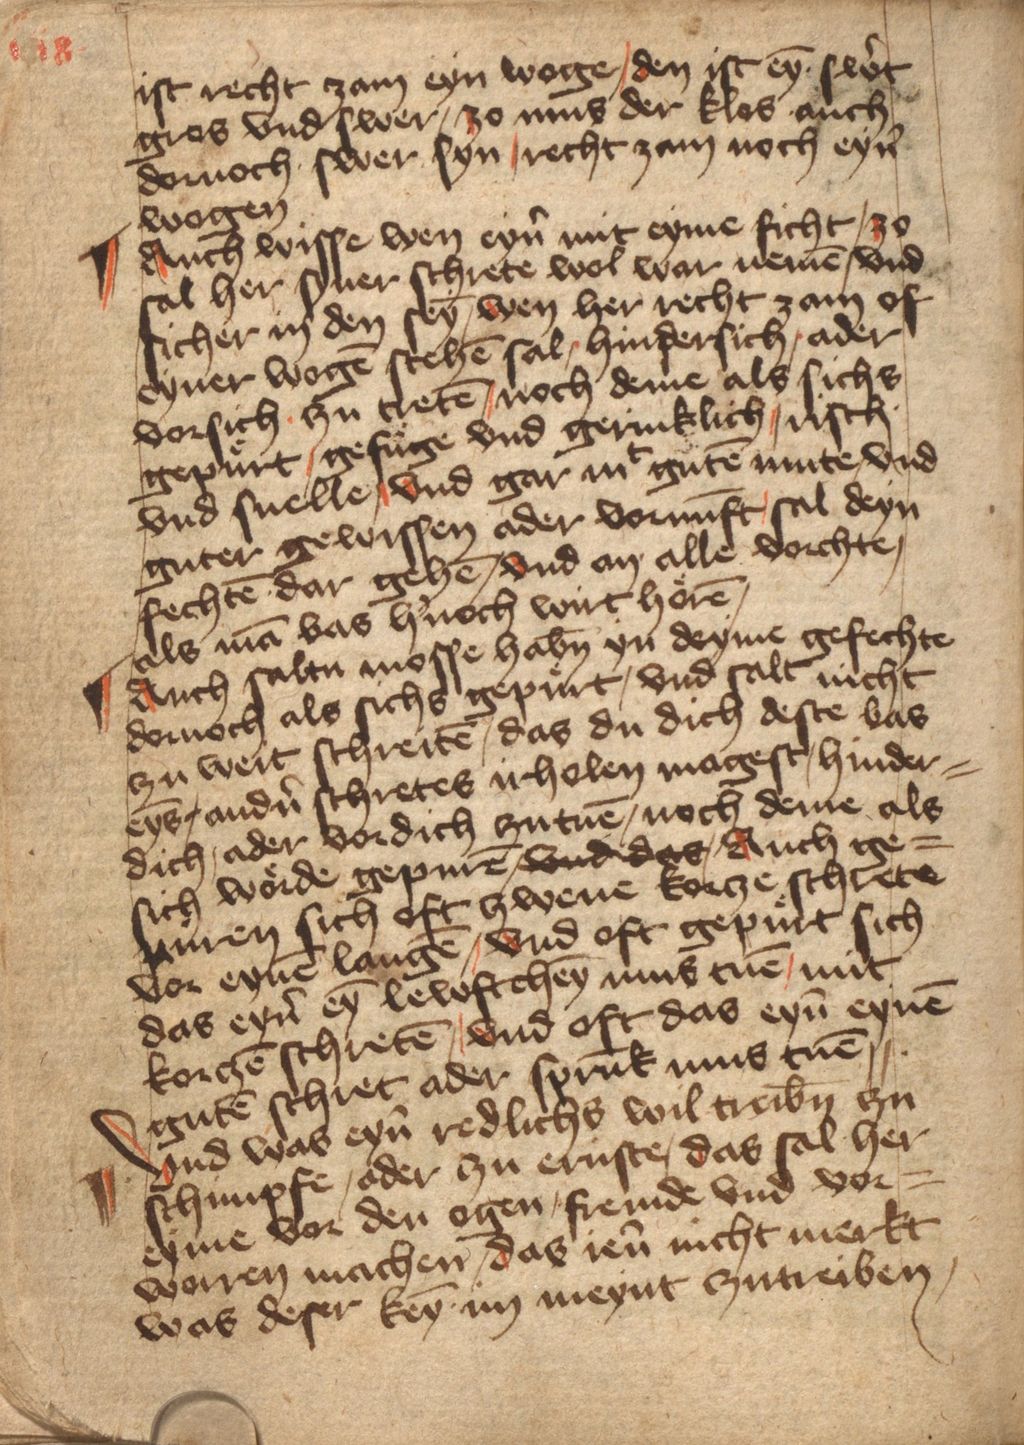 ist recht zam eyn woge / den ist eȳ swͤt
gros vnd swer / zo mus der klos auch
dornoch swer syn / recht zam noch eyn̄
wogen
Auch wisse wen eyn̄ mit eyme ficht / zo
sal her syner schrete wol war nemē / vnd
sicher in den seȳ / wen her recht zam of
eyner wogē stehē sal / hindersich / ader
vorsich zu tretē / noch deme als sichs
gepüͤrt / gefuͤge vnd gerinklich / risch
vnd snelle / vnd gar mͭ gutē mute / vnd
guter gewissen ader vornūft / sal deyn
fechtē dar gehē / vnd an alle vorchte /
als mā bas h'noch wirt hoͤrē /
Auch saltu mosse habn̄ yn deyme gefechte
dornoch als sichs gepuͤrt / vnd salt nicht
zu weit schreitē / das du dich deste bas
eys / andn̄ schretes irholen magest / hinder=
dich / ader vordich zutuē / noch deme als
sich woͤrde gepurē / vnd das / Auch ge=
puren sich oft zwene korcze schrete
vor eynē langē / vnd oft gepuͤrt sich
das eyn̄ eȳ lewftcheȳ mus tuē / mit
korczē schretē / vnd oft das eyn̄ eynē
gutē schret ader sprūk mus tuē /
Vnd was eyn̄ redlichs wil treibn̄ zu
schimpfe / ader zu ernste / das sal her
eyme vor den ogen / fremde vnd vor=
worren machen / das ien̄ nicht merkt
was deser keȳ im meynt zutreiben /